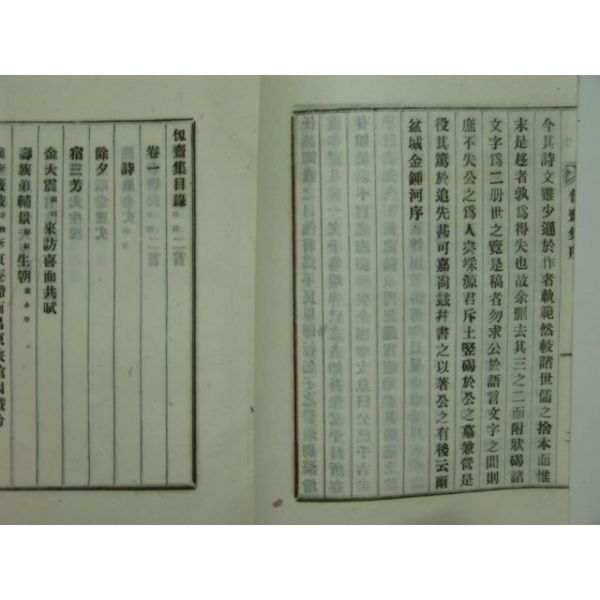 今其詩文雖少遜於作者軌範然較諸世儒之捨本而惟
末是趍者孰爲得失也故余刪去其三之二而附狀碣諸
文字爲二册世之覽是稿者勿求公於語言文字之間則
庶不失公之爲人矣琛源君斥土竪碣於公之墓兼營是
役其篤於追先甚可嘉尙玆幷書之以著公之有後云爾
盆城金鍾河序
愧齋集目錄
卷一
詩
除夕
宿三芳
金大震來訪喜而共賦
壽族弟輔景生朝